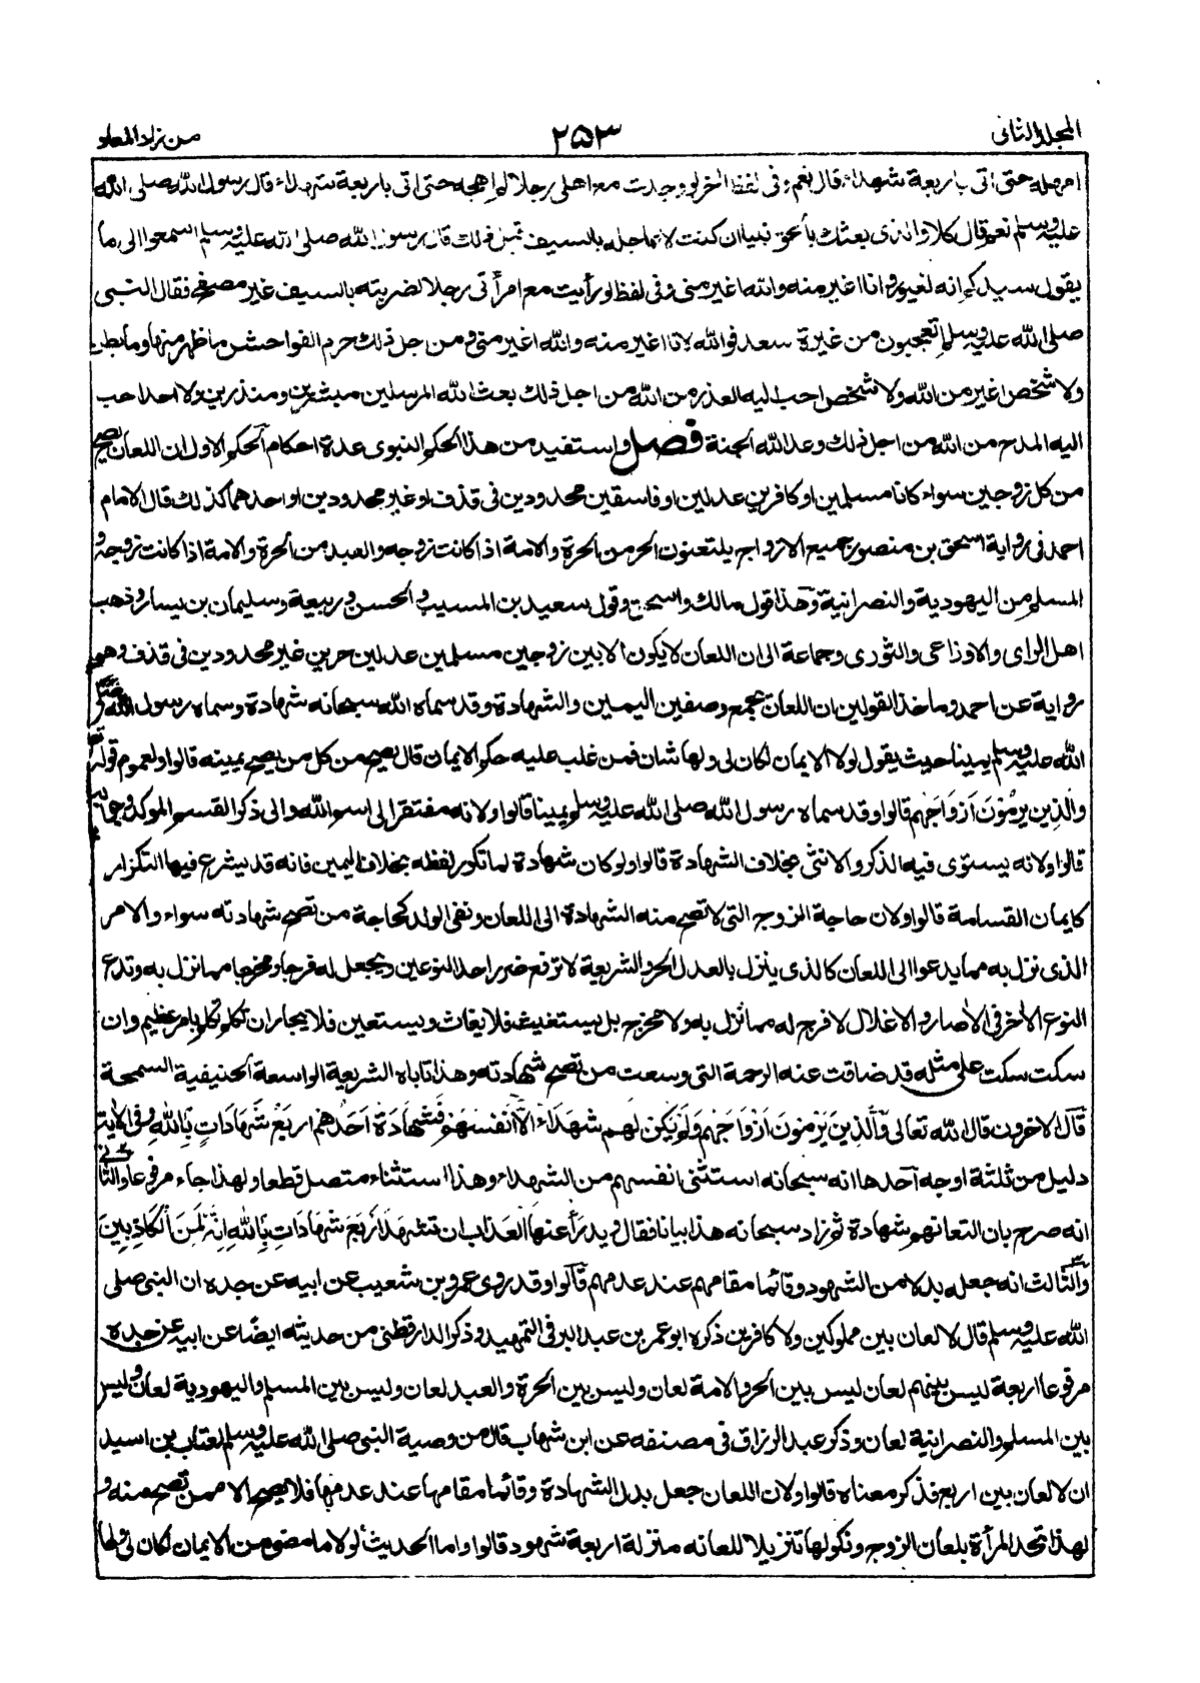 المجلد الثانی
٢٥٣
من زاد المعاد
امهله حتى اتى باربعة شهداء قال نعم وفى لفظ اخر لو وجدت مع اهلى رجلا لم اهجه حتى اتى باربعة شهداء قال رسول الله صلى الله
عليه وسلم نعم قال كلا والذى بعثك بالحق نبيا ان كنت لاعاجله بالسيف قبل ذلك قال رسول الله صلى الله عليه وسلم اسمعوا الى ما
يقول سيدكم انه لغيور وانا اغير منه والله اغير منى وفى لفظ لو رأيت مع امرأتى رجلا لضربته بالسيف غير مصفح فقال النبى
صلى الله عليه وسلم اتعجبون من غيرة سعد فوالله لانا اغير منه والله اغير منى ومن اجل ذلك حرم الفواحش ما ظهر منها وما بطن
ولا شخص اغير من الله ولا شخص احب اليه العذر من الله من اجل ذلك بعث الله المرسلين مبشرين ومنذرين ولا احد احب
اليه المدح من الله من اجل ذلك وعد الله الجنة فصل واستفيد من هذا الحكم النبوى عدة احكام الحكم الاول ان اللعان يصح
من كل زوجين سواء كانا مسلمين او كافرين عدلين او فاسقين محدودين فى قذف او غير محدودين او احدهما كذلك قال الامام
احمد فى رواية اسحق بن منصور جميع الازواج يلتعنون الحر من الحرة والامة اذا كانت زوجه والعبد من الحرة والامة اذا كانت زوجة و
المسلم من اليهودية والنصرانية وهذا قول مالك واسحق وقول سعيد بن المسيب والحسن وربيعة وسليمان بن يسار وذهب
اهل الراى والاوزاعى والثورى وجماعة الى ان اللعان لا يكون الا بين زوجين مسلمين عدلين حرين غير محدودين فى قذف وهو
رواية عن احمد وماخذ القولين ان اللعان يجمع وصفين اليمين والشهادة وقد سماه الله سبحانه شهادة وسماه رسول الله صلى
الله عليه وسلم يمينا حيث يقول لولا الايمان لكان لى ولها شان فمن غلب عليه حكم الايمان قال يصح من كل من يصح يمينه قالوا ولعموم قوله تعالى
والذين يرمون ازواجهم قالوا وقد سماه رسول الله صلى الله عليه وسلم يمينا قالوا ولانه مفتقر الى اسم الله والى ذكر القسم الموكد وجوابه
قالوا ولانه يستوى فيه الذكر والانثى بخلاف الشهادة قالوا ولو كان شهادة لما تكرر لفظه بخلاف اليمين فانه قد يشرع فيها التكرار
كايمان القسامة قالوا ولان حاجة الزوج التى لا تصح منه الشهادة الى اللعان ونفى الولد كحاجة من تصح شهادته سواء والامر
الذى نزل به مما يدعوا الى اللعان كالذى ينزل بالعدل الحر والشريعة لا ترفع ضرر احد النوعين وتجعل له فرجا ومخرجا مما نزل به وتدع
النوع الاخر فى الاصار والاغلال لا فرج له مما نزل به ولا مخرج بل يستغيث فلا يغاث ويستعين فلا يجار ان تكلم تكلم بامر عظيم وان
سكت سكت على مثله قد ضاقت عنه الرحمة التى وسعت من تصح شهادته وهذا تاباه الشريعة الواسعة الحنيفية السمحة
قال الاخرون قال الله تعالى والذين يرمون ازواجهم ولم يكن لهم شهداء الا انفسهم فشهادة احدهم اربع شهادات بالله وفى الاية
دليل من ثلثة اوجه احدها انه سبحانه استثنى انفسهم من الشهداء وهذا استثناء متصل قطعا ولهذا جاء مرفوعا والثانى
انه صرح بان التعانهم شهادة ثم زاد سبحانه هذا بيانا فقال ويدرأ عنها العذاب ان تشهد اربع شهادات بالله انه لمن الكاذبين
والثالث انه جعله بدلا من الشهود وقائما مقامهم عند عدمهم قالوا وقد روى عمرو بن شعيب عن ابيه عن جده ان النبى صلى
الله عليه وسلم قال لا لعان بين مملوكين ولا كافرين ذكره ابو عمر بن عبد البر فى التمهيد وذكر الدارقطنى من حديثه ايضًا عن ابيه عن جده
مرفوعا اربعة ليس بينهم لعان ليس بين الحر والامة لعان وليس بين الحرة والعبد لعان وليس بين المسلم واليهودية لعان وليس
بين المسلم والنصرانية لعان وذكر عبد الرزاق فى مصنفه عن ابن شهاب قال من وصية النبى صلى الله عليه وسلم لعتاب بن اسيد
ان لا لعان بين اربع فذكر معناه قالوا ولان اللعان جعل بدل الشهادة وقائما مقامها عند عدمها فلا يصح الا ممن تصح منه و
لهذا تحد المرأة بلعان الزوج ونكولها تنزيلا للعانه منزلة اربعة شهود قالوا واما الحديث لولا ما مضى من الايمان لكان لى ولها